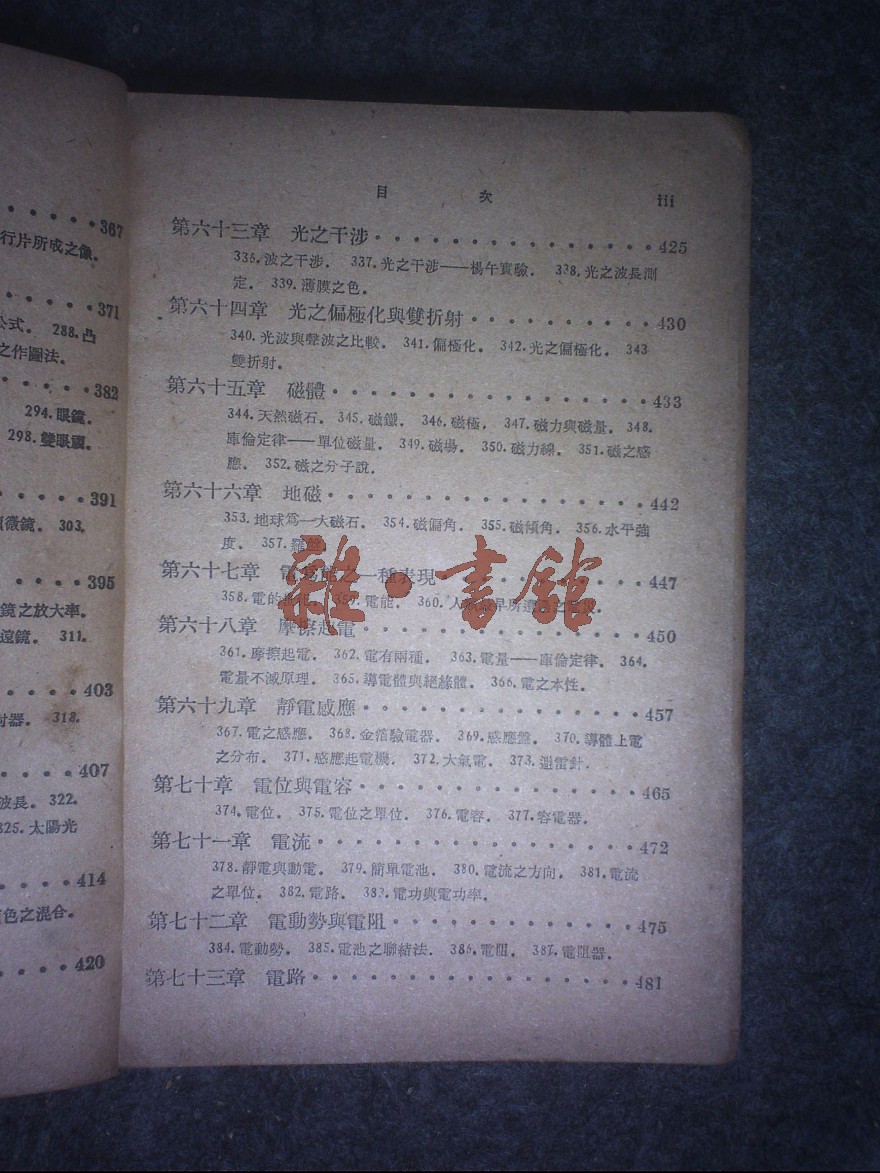 367
行片所成之像.
371
公式. 288.凸
之作圖法.
382
294.眼鏡.
298.雙眼
391
微鏡. 303.
395
鏡之放大率.
遠鏡. 311.
403
射器. 318.
407
波長. 322.
325.太陽光
414
色之混合.
420
目 次 iii
第六十三章 光之干涉 425
336.波之干涉. 337.光之干涉——楊午實驗. 338.光之波長測
定. 339.薄膜之色.
第六十四章 光之偏極化與雙折射 430
340.光波與聲波之比較. 341.偏極化. 342.光之偏極化. 343
雙折射.
第六十五章 磁體 433
344.天然磁石. 345.磁鐵. 346.磁極. 347.磁力與磁量. 348.
庫倫定律——單位磁量. 349.磁場. 350.磁力線. 351.磁之感
應. 352.磁之分子說.
第六十六章 地磁 442
353.地球爲一大磁石. 354.磁偏角. 355.磁傾角. 356.水平強
度. 357.羅盤.
第六十七章 電爲能之一種表現 447
358.電的 359.電能. 360.人類最早所
第六十八章 摩擦起電 450
361.摩擦起電. 362.電有兩種. 363.電量——庫倫定律. 364.
電量不減原理. 365.導電體與絕緣體. 366.電之本性.
第六十九章 靜電感應 457
367.電之感應. 368.金箔驗電器. 369.感應盤. 370.導體上電
之分布. 371.感應起電機. 372.大氣電. 373.避雷針.
第七十章 電位與電容 465
374.電位. 375.電位之單位. 376.電容. 377.容電器.
第七十一章 電流 472
378.靜電與動電. 379.簡單電池. 380.電流之方向. 381.電流
之單位. 382.電路. 383.電功與電功率.
第七十二章 電動勢與電阻 475
384.電動勢. 385.電池之聯結法. 386.電阻. 387.電阻器.
第七十三章 電路 481
雜·書館